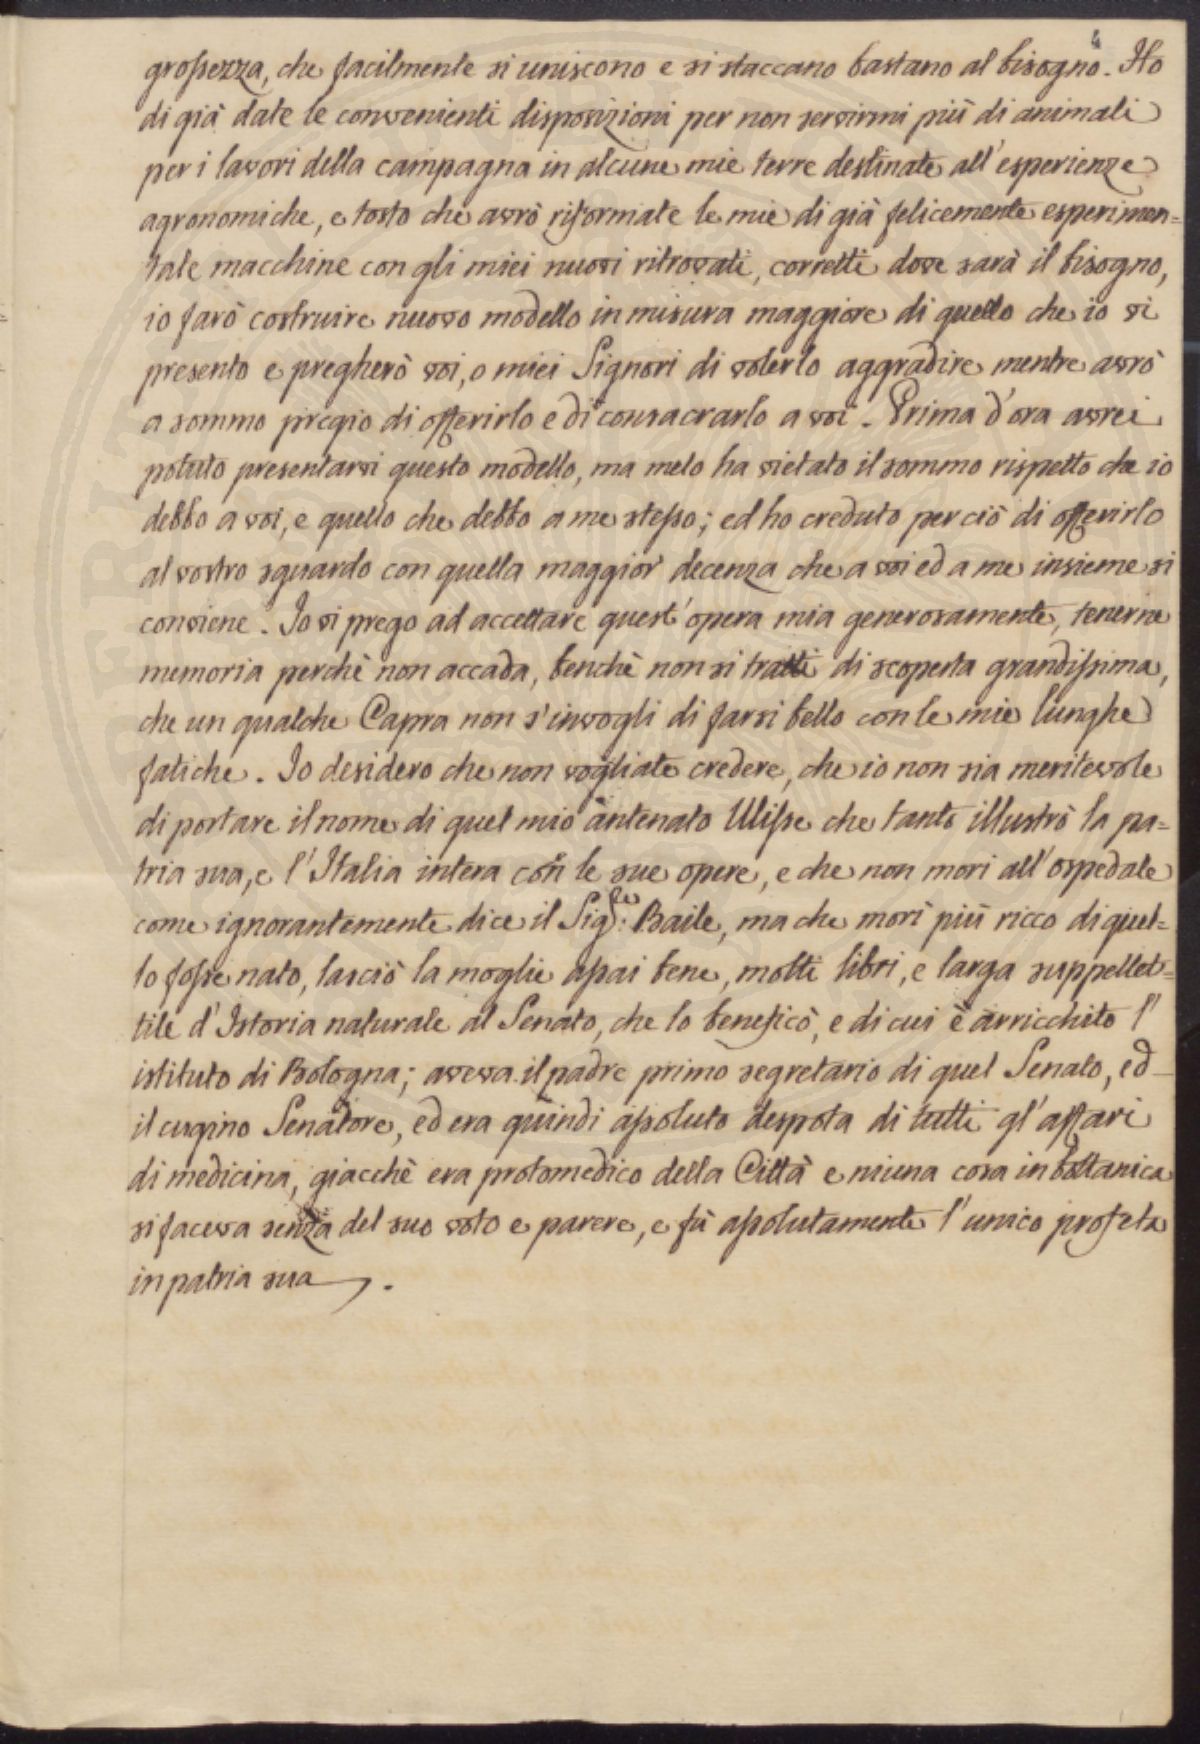 4
grossezza, che facilmente si uniscono e si staccano bastano al bisogno. Ho
di già date le convenienti disposizioni per non servirmi più di animali
per i lavori della campagna in alcune mie terre destinate all'esperienze
agronomiche, e tosto che avrò riformate le mie di già felicemente esperimen=
tate macchine con gli miei nuovi ritrovati, corretti dove sarà il bisogno,
io farò costruire nuovo modello in misura maggiore di quello che io vi
presento e pregherò voi, o miei Signori di volerlo aggradire mentre avrò
a sommo pregio di offerirlo e di consacrarlo a voi. Prima d'ora avrei
potuto presentarvi questo modello, ma melo ha vietato il sommo rispetto che io
debbo a voi, e quello che debbo a me stesso; ed ho creduto perciò di offerirlo
al vostro sguardo con quella maggior decenza che a voi ed a me insieme si
conviene. Io vi prego ad accettare quest'opera mia generosamente, tenerne
memoria perchè non accada, benchè non si tratti di scoperta grandissima,
che un qualche Capra non s'invogli di farsi bello con le mie lunghe
fatiche. Io desidero che non vogliate credere, che io non sia meritevole
di portare il nome di quel mio antenato Ulisse che tanto illustrò la pa=
tria sua, e l'Italia intera con le sue opere, e che non mori all'ospedale
come ignorantemente dice il Sig.re Baile, ma che morì più ricco di quel=
lo fosse nato, lasciò la moglie assai bene, molti libri, e larga suppellet=
tile d'Istoria naturale al Senato, che lo beneficò, e di cui è arricchito l'
istituto di Bologna; aveva il padre primo segretario di quel Senato, ed
il cugino Senatore, ed era quindi assoluto despota di tutti gl'affari
di medicina, giacchè era protomedico della Città e niuna cosa in bottanica
si faceva senza del suo voto e parere, e fù assolutamente l'unico profeta
in patria sua.